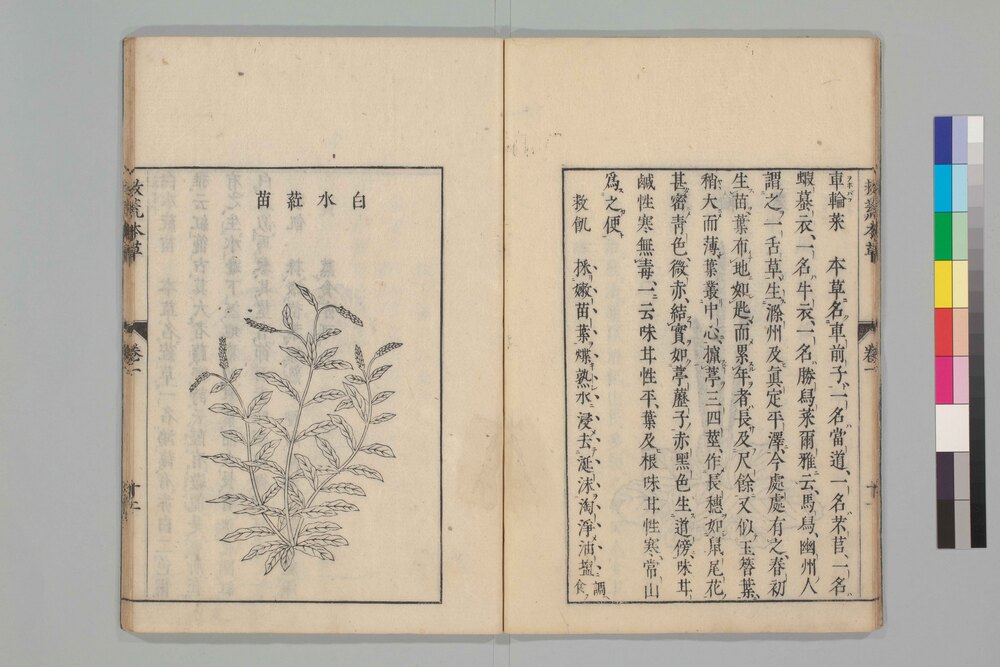 救荒本草
卷一
車輪菜　本草名車前子、一名當道、一名芣苢、一名
蝦蟇衣、一名牛衣、一名勝舄菜爾雅云、馬舄、幽州人
謂之一舌草、生滁州及眞定平澤、今處處有之、春初
生苗葉布地如匙面、累年者、長及尺餘又似玉簪葉、
稍大而薄、葉叢中心攛葶三四莖、作長穗如鼠尾花
甚密青色、微赤、結實如葶藶子赤黑色生道傍、味甘
鹹性寒無毒、一云味甘性平、葉及根味甘性寒、常山
爲之使
救飢　採嫩苗葉煠熟水浸去涎沫淘淨油鹽調食
白水葒苗
救荒本草
卷一
十二